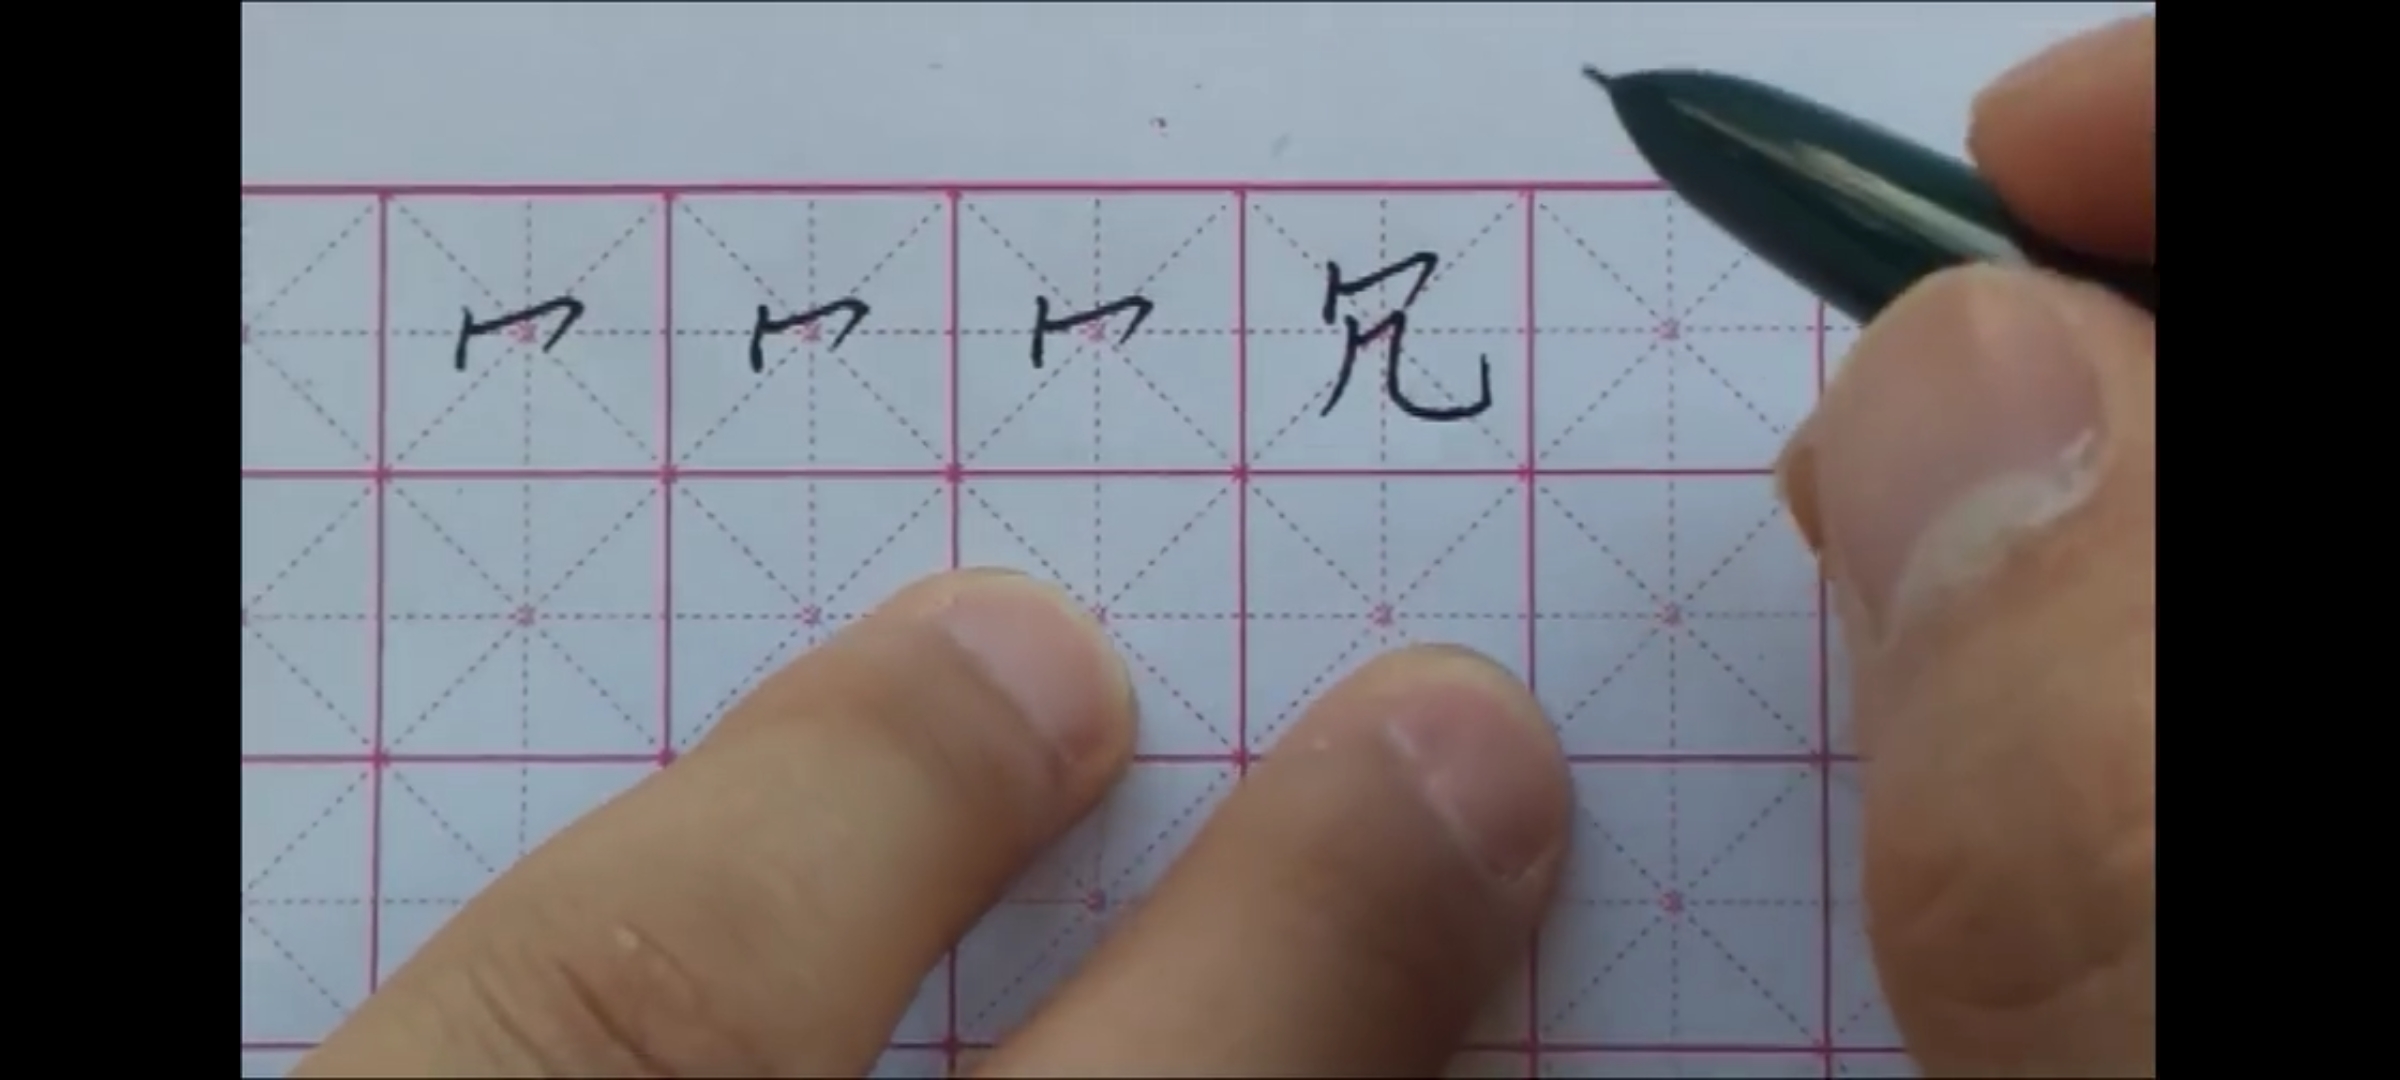 冖 冖 冖 冗